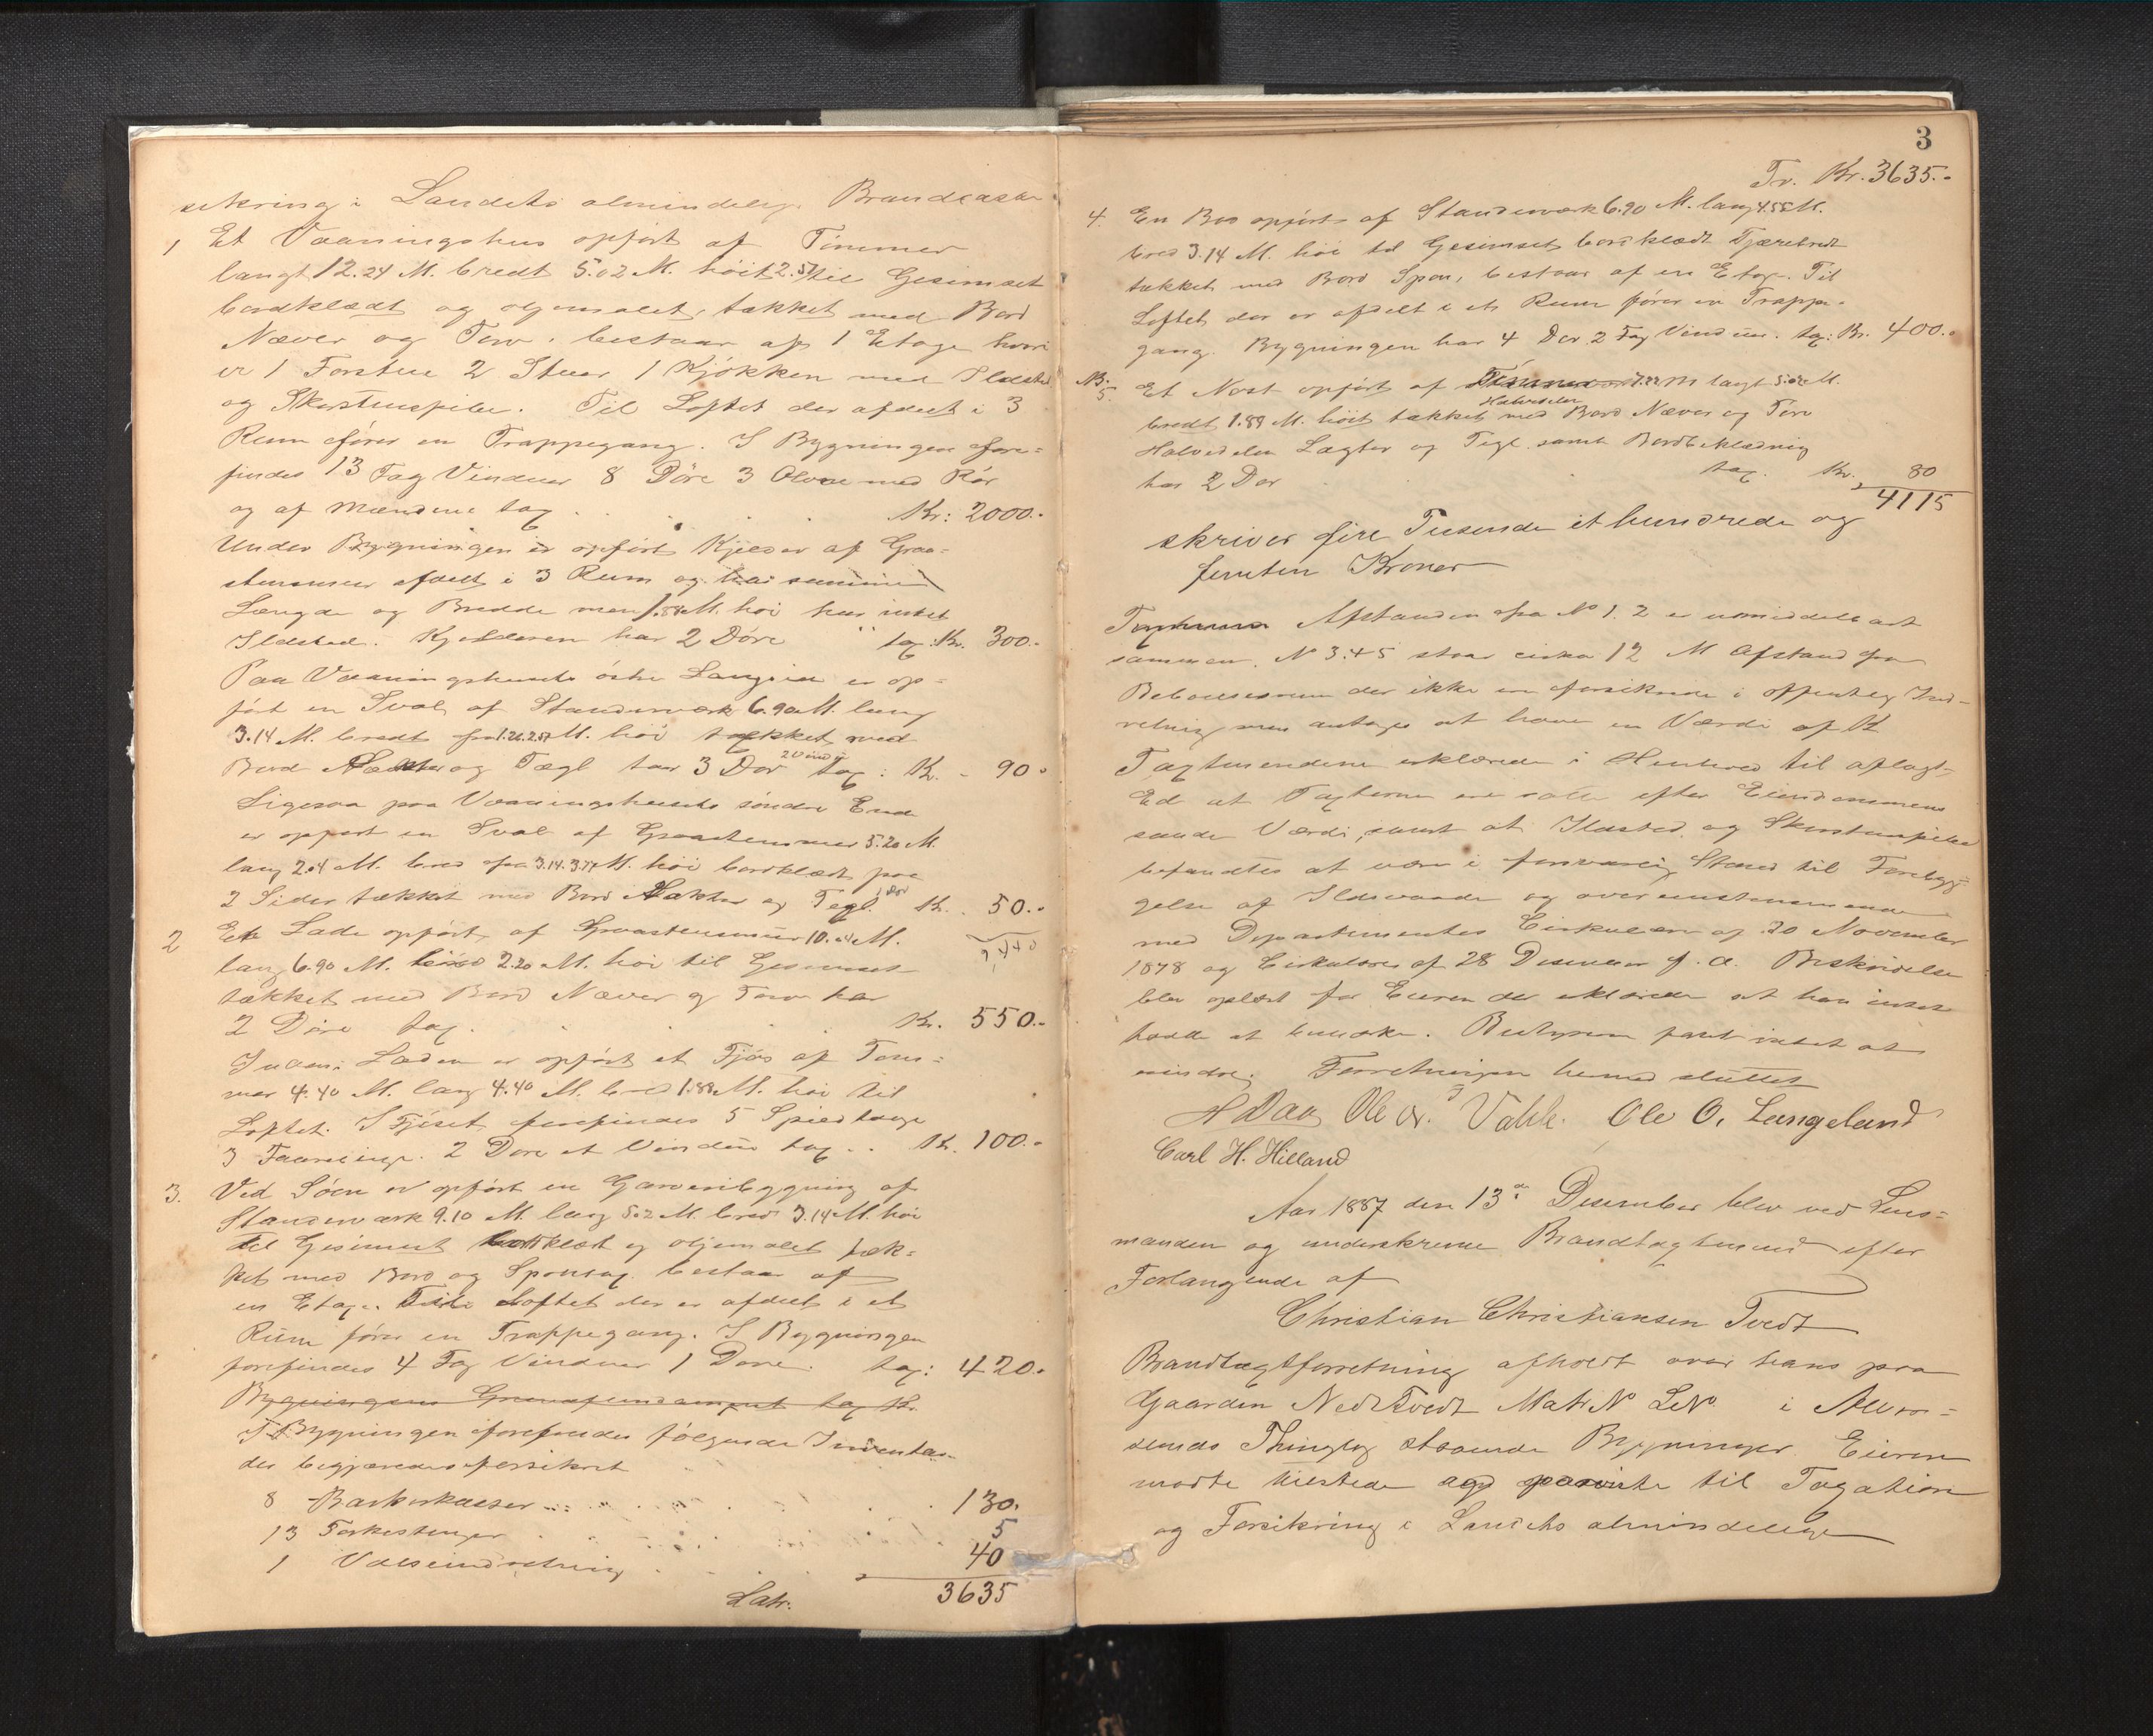 sikring i Landets almindelige Brandkasse
1 Et Vaaningshus opført af Tømmer
langt 12.24 M. bredt 5.02 M. høit 2.51 til Gesimset
bordklædt og oljemalet, tækket med Bord
Næver og Torv, bestaar af 1 Etage hvori
er 1 Forstue 2 Stuer 1 Kjøkken med Ildsted
og Skorstenspibe. Til Loftet der afdelt i 3
Rum fører en Trappegang. I Bygningen fore=
findes 13 Fag Vinduer 8 Døre 3 Ovne med Rør
og af Mændene tax . . . . Kr: 2000.-
Under Bygningen er opført Kjelder af Graa=
stensmur afdelt i 3 Rum og har samme
Længde og Bredde men 1.88 M. høi har intet
Ildsted. Kjelderen har 2 Døre " tax: Kr. 300.-
Paa Vaaningshusets østre Langside er op=
ført en Sval af Standerværk 6.90 M. lang
3.14 M. bredt fra 1.26 2.57 M. høi tækket med
Bord Lækter og Tægl har 3 Dør 2 Vindu tax: Kr. - 90.
Ligesaa paa Vaaningshusets søndre Ende
er opført en Sval af Graastensmur 5.20 M.
lang 2.04 M. bred fra 3.14. 3.77 M. høi bordklædt paa
2 Sider tækket med Bord Lækter og Tegl. 1 Dør Kr. 50.-
2,440
2 En Lade opført af Graastensmur 10.04 M.
lang 6.90 M. bred 2.20 M. høi til Gesimset
tækket med Bord Næver og Torv har
2 Døre tax. . . . Kr. 550.-
Inden i Laden er opført et Fjøs af Tøm=
mer 4.40 M. lang 4.40 M. bred 1.88 M. høi til
Loftet. I Fjøset forefindes 5 Spiltauge
3 Faarebinge. 2 Døre et Vindue tax . . Kr. 100.-
3. Ved Søen er opført en Garveribygning af
Standerværk 9.10 M. lang 5.2 M. bred 3.14 M. høi
til Gesimset bordklædt og oljemalet tæk=
ket med Bord og Spontag bestaar af
en Etage. Til Loftet der er afdelt i et
Rum fører en Trappegang. I Bygningen
forefindes 4 Fag Vinduer 1 Døre. tax: 420.-
Bygningens Grundfundament tax Kr.
I Bygningen forefindes følgende Inventar
der begjæredes forsikret
8 Barkekasser . . . . 130.
13 Farkestenger . . . . 5
1 Valseindretning . . . . 40
Latr. 3635
3
Tr. Kr. 3635.-
4. En Bod opført af Standerværk 6.90 M. lang 4.55 M.
bred 3.14 M. høi til Gesimset bordklædt Tjærebredt
tækket med Bord Spon, bestaar af en Etage. Til
Loftet der er afdelt i et Rum fører en Trappe-
gang. Bygningen har 4 Dør 2 Fag Vinduer. tax: Kr. 400.-
No. 5. Et Nøst opført af Tømmer 7.22 M langt 5.02 M.
bredt 1.88 M. høit tækket Halvdelen med Bord Næver og Torv
Halvdelen Lægter og Tegl samt Bordbeklædning
har 2 Dør . . tax. Kr. 80
4115
skriver fire Tusende et hundrede og
femten Kroner
Afstanden fra No 1. 2 er umiddelbart
sammen. No 3. 4 5 staar cirka 12 M Afstand fra
Beboelsesrum der ikke er forsikrede i offentlig Ind-
retning men antages at have en Værdi af Kr
Taxtmændene erklærede i Henhold til aflagt
Ed at Taxterne ere satte efter Eiendommens
sande Værdi, samt at Ildsted og Skorstenspibe
befandtes at være i forsvarlig Stand til Forebyg-
gelse af Ildsvaade og overensstemmende
med Departementets Cirkulære af 20 November
1878 og Cirkulære af 28 Desember f. a. Beskrivelse
blev oplæst for Eieren der erklærede at han intet
havde at bemærke. Bestyren fant intet at
erindre. Forretningen hermed sluttet
H Daae Ole O. Vabli. Ole O. Langeland
Carl H. Hilland
Aar 1887 den 13de Desember blev ved Lens=
manden og underskrevne Brandtaxtmænd efter
Forlangende af
Christian Christiansen Tvedt
Brandtaxtforretning afholdt over hans paa
Gaarden Ned. Tvedt Matr No LNo i Alver=
sunds Thinglag staaende Bygninger. Eieren
mødte tilstede og paaviste til Taxation
og Forsikring i Landets almindelige